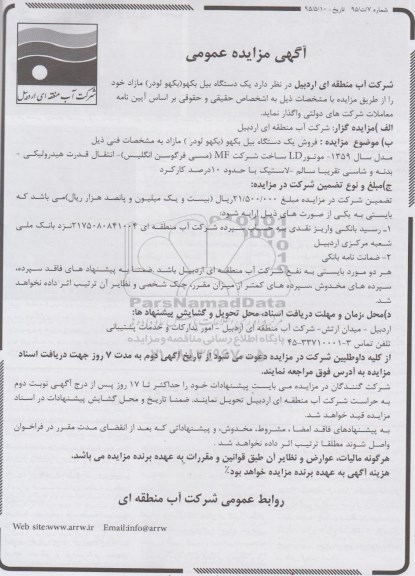 شماره ۹۵/ت/۷ تاریخ ۹۵/۵/۱۰
شرکت آب منطقه ای اردبیل
آگهی مزایده عمومی
شرکت آب منطقه ای اردبیل در نظر دارد یک دستگاه بیل بکهو(بکهو لودر) مازاد خود
را از طریق مزایده با مشخصات ذیل به اشخاص حقیقی و حقوقی بر اساس آیین نامه
معاملات شرکت های دولتی واگذار نماید.
الف )مزایده گزار: شرکت آب منطقه ای اردبیل
ب) موضوع مزایده : فروش یک دستگاه بیل بکهو (بکهو لودر ) مازاد به مشخصات فنی ذیل
مدل سال ۱۳۵۹- موتورI.D ساخت شرکت MF (مسی فرگوسن انگلیس)- انتقال قدرت هیدرولیکی -
بدنه و شاسی تقریبا سالم -لاستیک با حدود ۱۰درصد کارکرد
ج)مبلغ و نوع تضمین شرکت در مزایده:
تضمین شرکت در مزایده مبلغ ۲۱/۵۰۰/۰۰۰ریال(بیست و یک میلیون و پانصد هزار ریال)می باشد که
بایستی به یکی از صورت های ذیل ارایه شود:
۱- رسید بانکی واریز نقدی به حساب سپرده شرکت آب منطقه ای ۲۱۷۵۰۸۰۸۴۱۰۰۴نزد بانک ملی
شعبه مرکزی اردبیل
۲- ضمانت نامه بانکی
هر دو مورد بایستی به نفع شرکت آب منطقه ای اردبیل باشد ضمناً به پیشنهاد های فاقد سپرده،
سپرده های مخدوش سپرده های کمتر از میزان مقرر، چک شخصی و نظایر آن ترتیب اثر داده نخواهد
شد.
د)محل ،زمان و مهلت دریافت اسناد، محل تحویل و گشایش پیشنهاد ها:
اردبیل - میدان ارتش- شرکت آب منطقه ای اردبیل - امور تدارکات و خدمات پشتیبانی
تلفن تماس ۳-۳۳۷۱۰۰۰۱-۴۵
از کلیه داوطلبین شرکت در مزایده دعوت می شود از تاریخ آگهی دوم به مدت ۷ روز جهت دریافت اسناد
مزایده به آدرس فوق مراجعه نمایند.
شرکت گنندگان در مزایده می بایست پیشنهادات خود را حداکثر تا ۱۷ روز پس از درج آگهی نوبت دوم
به حراست شرکت آب منطقه ای اردبیل تحویل نمایند، ضمنا تاریخ و محل گشایش پیشنهادات در اسناد
مزایده قید خواهد شد.
به پیشنهادهای فاقد امضا ، مشروط، مخدوش، و پیشنهاداتی که بعد از انقضای مدت مقرر در فراخوان
واصل شوند مطلقا ترتیب اثر داده نخواهد شد .
هرگونه مالیات، عوارض و نظایر آن طبق قوانین و مقررات به عهده برنده مزایده می باشد.
هزینه آگهی به عهده برنده مزایده خواهد بود٪
روابط عمومی شرکت آب منطقه ای
Web site:www.arrw.ir Email:info@arrw
ParsNamadData
پایگاه اطلاع رسانی مناقصه و مزایده